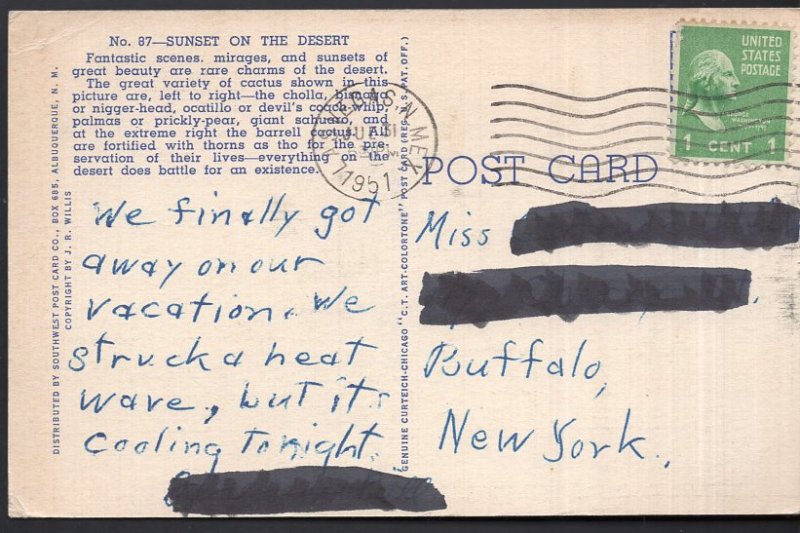 No. 87—SUNSET ON THE DESERT
Fantastic scenes. mirages, and sunsets of
great beauty are rare charms of the desert.
The great variety of cactus shown in this
picture are, left to right—the cholla, bisnaga
or nigger-head, ocatillo or devil's coach-whip,
palmas or prickly-pear, giant sahuaro, and
at the extreme right the barrell cactus. All
are fortified with thorns as tho for the pre-
servation of their lives—everything on the
desert does battle for an existence.
We finally got
away on our
vacation. We
struck a heat
wave, but it's
cooling tonight.
DISTRIBUTED BY SOUTHWEST POST CARD CO., BOX 685, ALBUQUERQUE, N. M.
COPYRIGHT BY J. R. WILLIS
GENUINE CURTEICH-CHICAGO "C.T. ART-COLORTONE" POST CARD (REG. U.S. PAT. OFF.)
N. MEX.
1951
UNITED
STATES
POSTAGE
GEORGE
WASHINGTON
1 CENT 1
POST CARD
Miss
Buffalo,
New York.